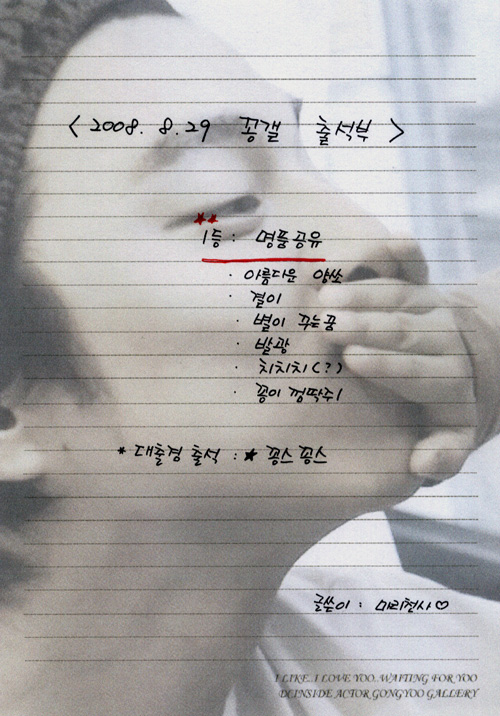 < 2008. 8. 29 꽁갤 출석부 >
1등 : 명품공유
· 아름다운 양쏘
· 결이
· 별이 꾸는꿈
· 발광
· 치치치(?)
· 꽁이 껌딱주ㅣ
* 대출경 출석 : ★ 꽁스꽁스
글쓴이 : 미리천사♡
I LIKE..I LOVE YOO..WAITING FOR YOO
D!INSIDE ACTOR GONGYOO GALLERY